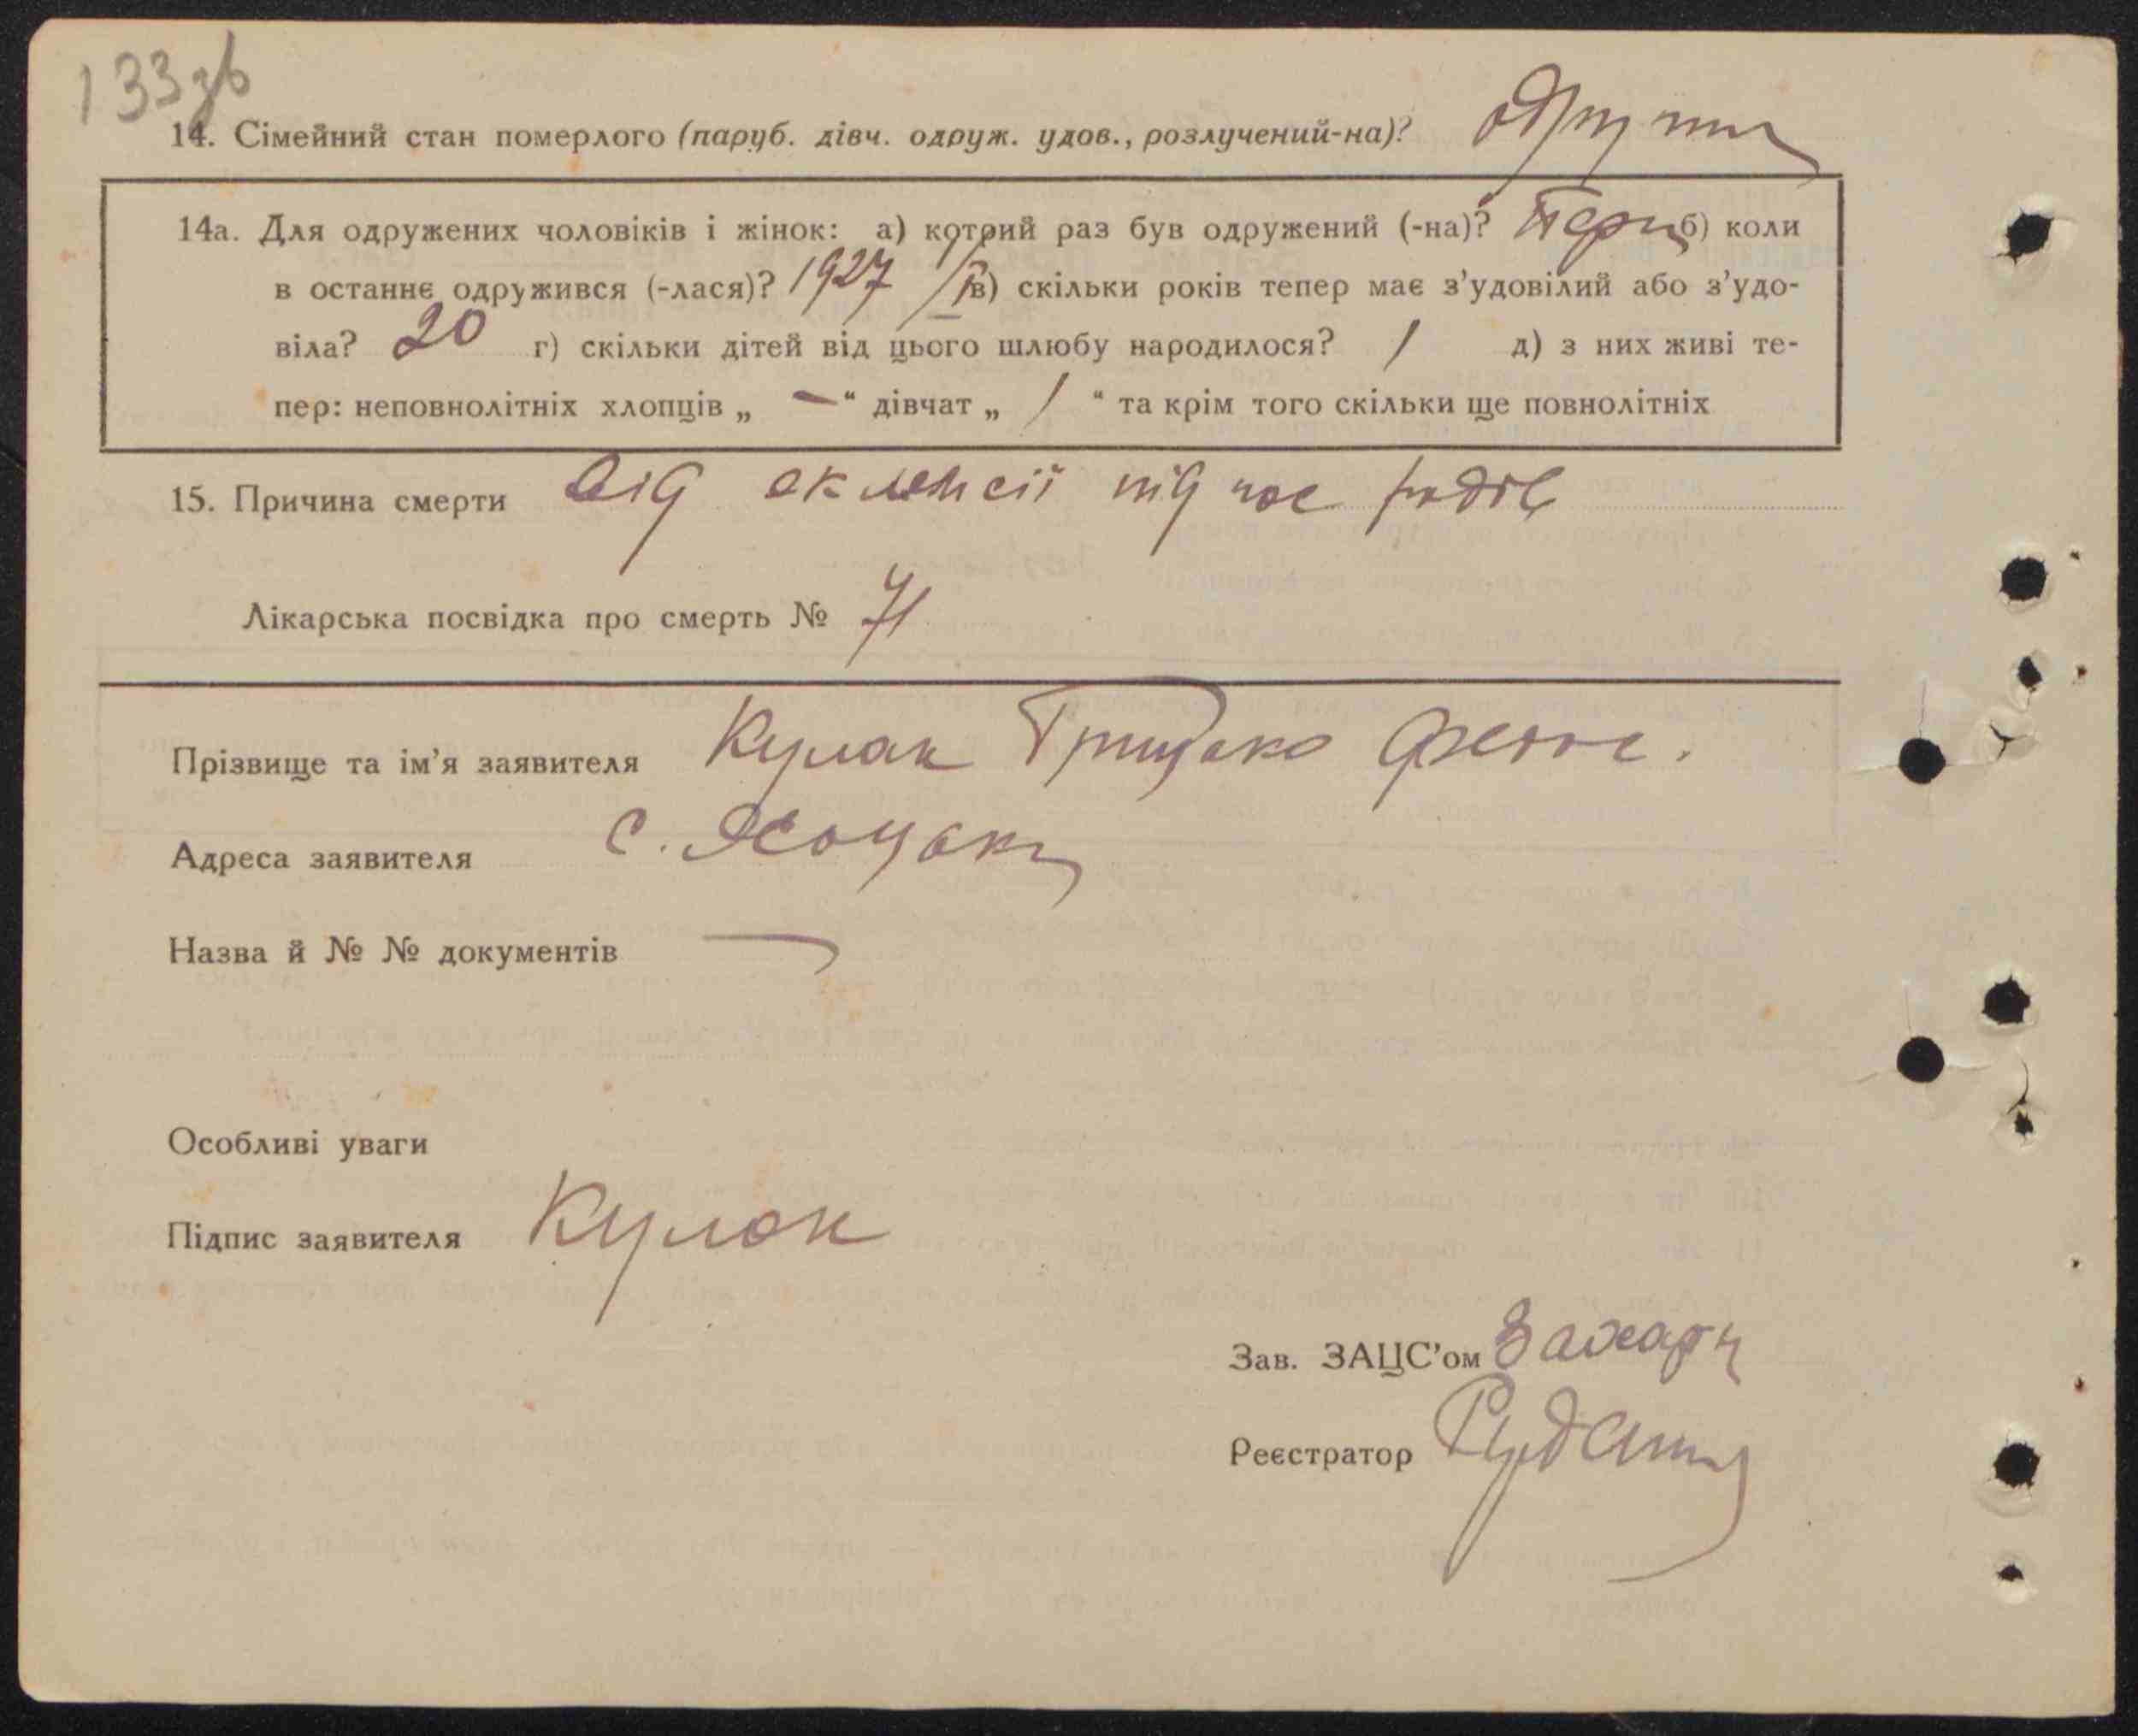 133зв
14. Сімейний стан померлого (паруб. дівч. одруж. удов., розлучений-на)?
14а. Для одружених чоловіків і жінок: а) котрий раз був одружений (-на)? Перш б) коли
в останнє одружився (-лася)? 1927 в) скільки років тепер має з'удовілий або з'удо-
віла? 20 г) скільки дітей від цього шлюбу народилося? 1 д) з них живі те-
пер: неповнолітніх хлопців „ — “ дівчат „ 1 “ та крім того скільки ще повнолітніх
15. Причина смерти від еклямсії під час родів
Лікарська посвідка про смерть № 71
Прізвище та ім'я заявителя Кулак Грицько
Адреса заявителя с.
Назва й № № документів —
Особливі уваги
Підпис заявителя Кулак
Зав. ЗАЦС'ом
Реєстратор